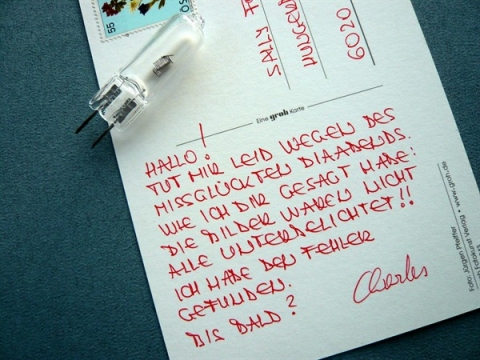 55
SALLY
6020
Eine groh Karte
HALLO!
TUT MIR LEID WEGEN DES
MISSGLÜCKTEN DIAABENDS.
WIE ICH DIR GESAGT HABE:
DIE BILDER WAREN NICHT
ALLE UNTERBELICHTET!!
ICH HABE DEN FEHLER
GEFUNDEN.
BIS BALD?
Charles
Foto: Jürgen Pfeiffer • www.groh.de